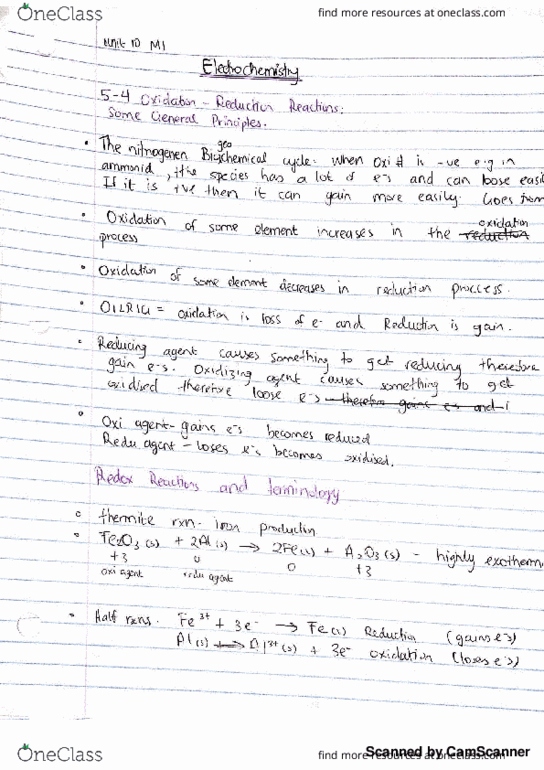 OneClass
find more resources at oneclass.com
Unit 10 M1
Electrochemistry
5-4 Oxidation - Reduction Reactions:
Some General Principles.
• The nitrogenen Biochemical cycle. When Oxi # is -ve e.g in
geo
ammonid, the species has a lot of e-s and can loose easil
If it is +ve then it can gain more easily. Goes from
• Oxidation of some element increases in the reduction
oxidation
process
• Oxidation of some element decreases in reduction process.
• OILRIG = oxidation is loss of e- and Reduction is gain.
• Reducing agent causes something to get reducing therefore
gain e-s. Oxidizing agent causes something to get
oxidised therefore loose e-s therefore gains e-s and
• Oxi agent - gains e-s becomes reduced
Redu agent - loses e-s becomes oxidised.
Redox Reactions and terminology
• thermite rxn - iron production
• Fe2O3(s) + 2Al(s) → 2Fe(s) + A2O3(s) - highly exotherm
+3 0 0 +3
oxi agent redu agent
• Half rxns. Fe3+ + 3e- → Fe(s) Reduction (gains e-s)
Al(s) → Al3+(s) + 3e- oxidation (loses e-s)
OneClass
find more resources at oneclass.com
Scanned by CamScanner